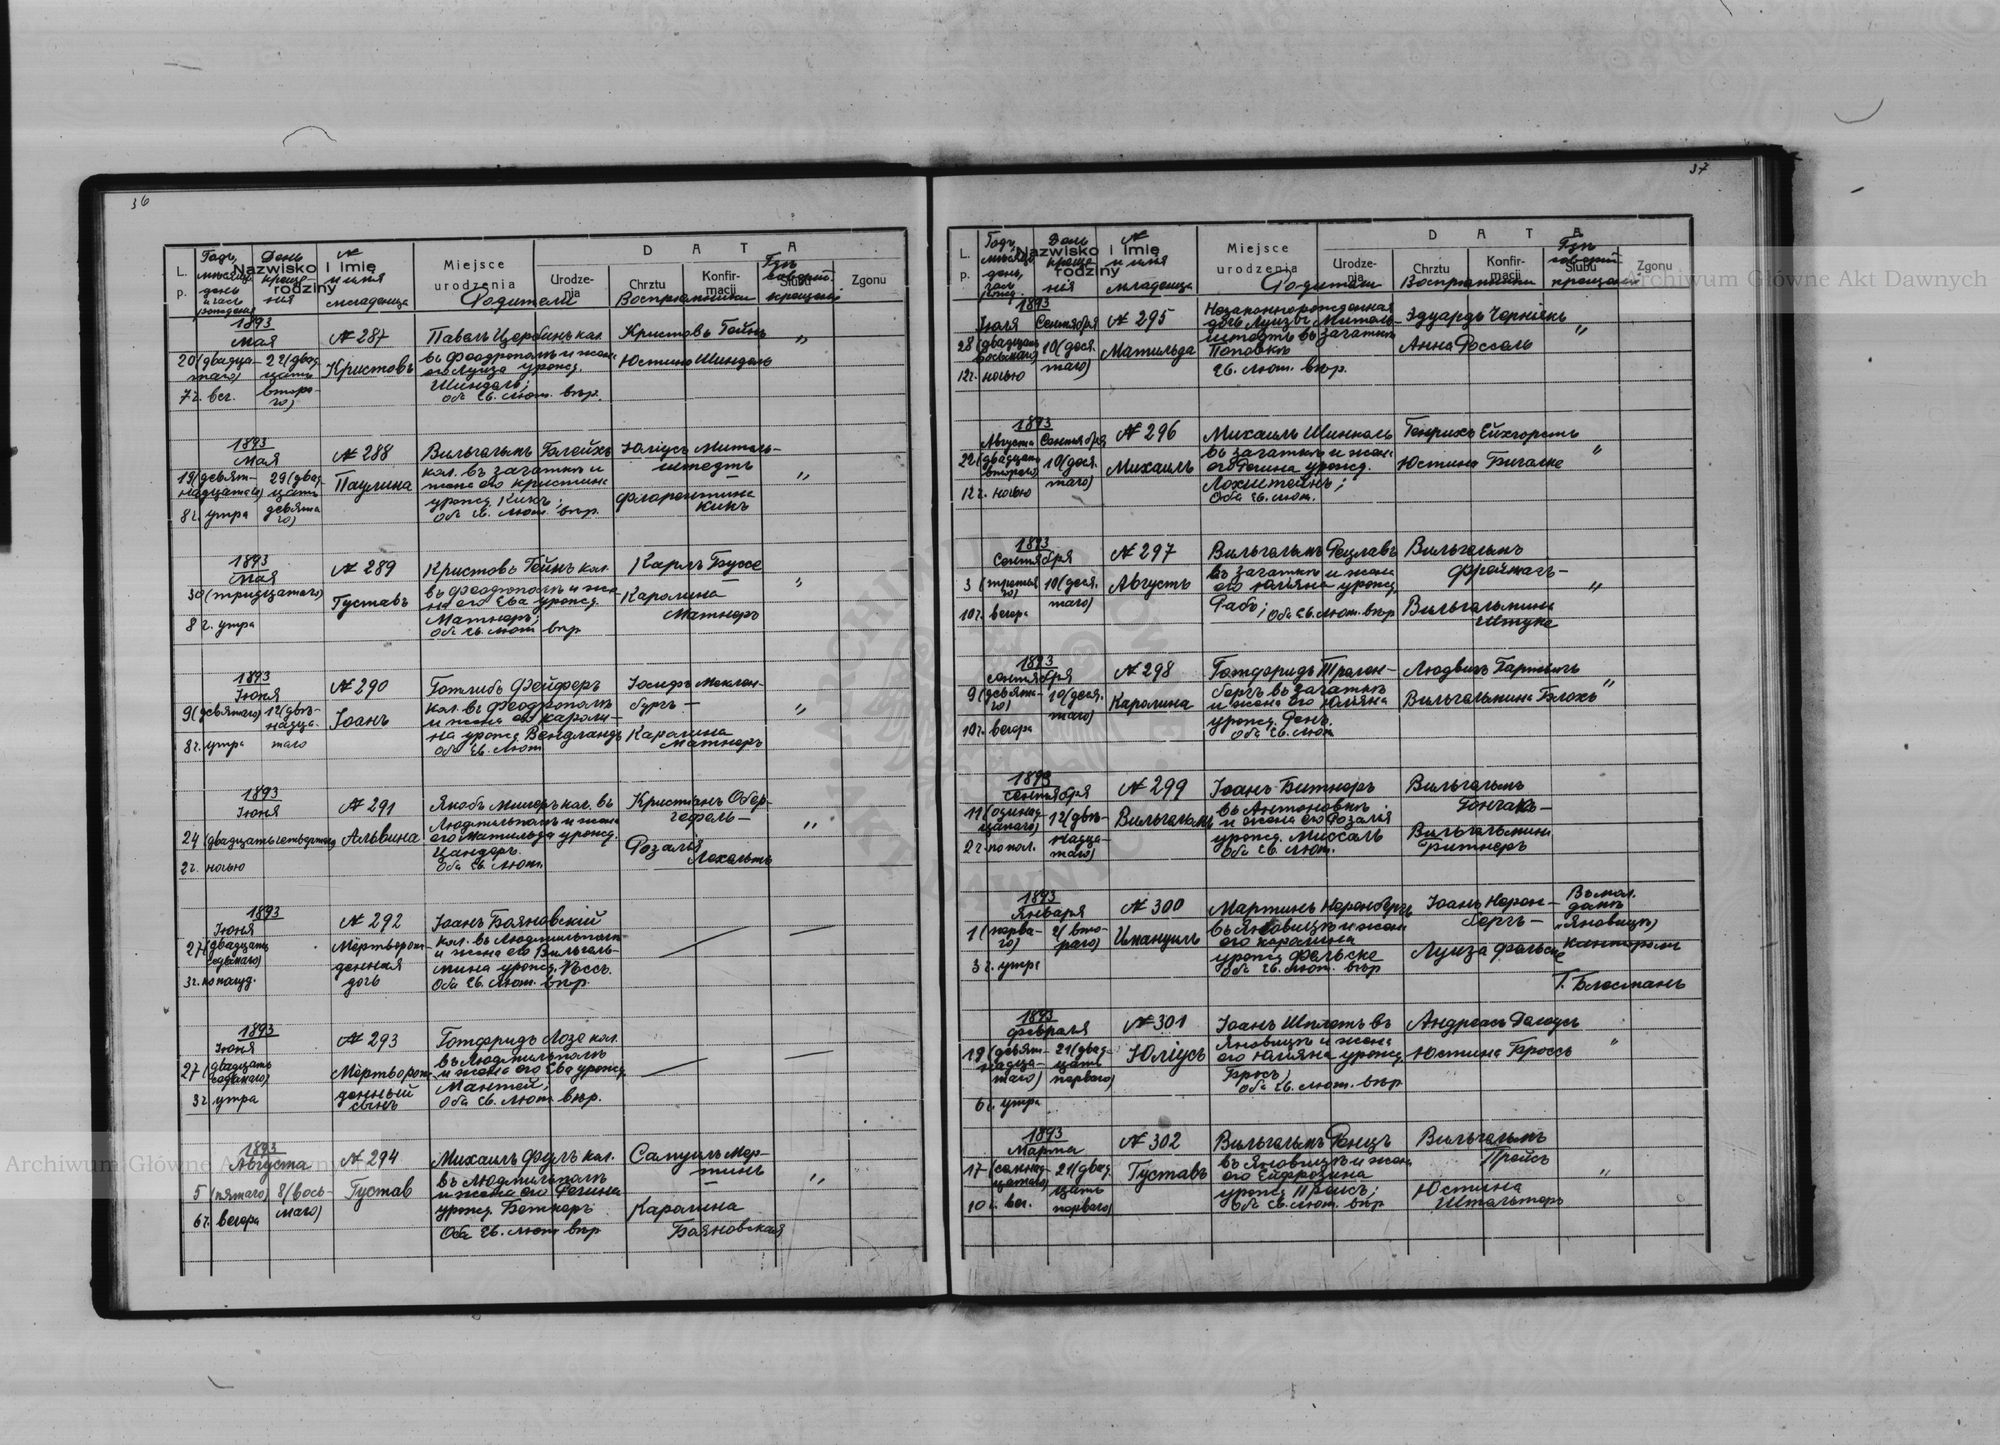 36
L. p.
Nazwisko i Imię rodziny
Miejsce urodzenia
D A T A
Urodzenia
Chrztu
Konfirmacji
Ślubu
Zgonu
Годъ, мѣсяцъ, день и часъ рожденія
День крещенія
№ и имя младенца
Родители
Воспріемники
Гдѣ соверш. крещеніе
1893
Мая
20 (двадцатаго)
7 ч. веч.
22 (двадцать второго)
№ 287
Кристовъ
Павелъ Щербань кол.
въ Феодрополѣ и жена
его Луиза урожд.
Шиндель;
Оба Ев. лют. вѣр.
Кристовъ Гейнъ
Юстина Шиндель
"
1893
Мая
19 (девятнадцатаго)
8 ч. утра
29 (двадцать девятаго)
№ 288
Паулина
Вильгельмъ Голейхъ
кол. въ Загаткѣ и
жена его Кристина
урожд. Кинъ;
Оба Ев. лют. вѣр.
Юліусъ Миттельштедтъ
Флорентина Кинъ
"
1893
Мая
30 (тридцатаго)
8 ч. утра
№ 289
Густавъ
Кристовъ Гейнъ кол.
въ Феодрополѣ и жена
его Ева урожд.
Матнеръ;
Оба Ев. лют вѣр
Карлъ Буссе
—
Каролина
Матнеръ
"
1893
Іюня
9 (девятаго)
8 ч. утра
12 (двѣнадцатаго
№ 290
Іоанъ
Готлибъ Фейферъ
кол. въ Феодрополѣ
и жена его Каролина
урожд. Вендландъ
Оба Ев. лют
Іосифъ Мекленбургъ —
Каролина
Матнеръ
"
1893
Іюня
24 (двадцать четвертаго)
2 ч. ночью
№ 291
Альвина
Якобъ Миллеръ кол. въ
Людмильполѣ и жена
его Матильда урожд.
Цандеръ.
Оба Ев. лют.
Кристіанъ Обергефель —
Розалія
"
1893
Іюня
27 (двадцать седьмаго)
3 ч. пополуд.
№ 292
Мертворожденная
дочь
Іоанъ Бояновскій
кол. въ Людмильполѣ
и жена его Вильгельмина урожд. Россъ.
Оба Ев. лют. вѣр.
—
—
1893
Іюня
27 (двадцать седьмаго)
3 ч утра
№ 293
Мертворожденный
сынъ
Готфридъ Лозе кол.
въ Людмильполѣ
и жена его Ева урожд.
Мантей;
Оба Ев. лют. вѣр.
—
—
1893
Августа
5 (пятаго)
6 ч. вечера
8 (восьмаго)
№ 294
Густав
Михаилъ Фулъ кол.
въ Людмильполѣ
и жена его Регина
урожд. Ботнеръ
Оба Ев. лют вѣр
Самуилъ Мертинъ
—
Каролина
Бояновская
"
37
L. p.
Nazwisko i Imię rodziny
Miejsce urodzenia
D A T A
Urodzenia
Chrztu
Konfirmacji
Ślubu
Zgonu
Годъ, мѣсяцъ, день, часъ рожд.
День крещенія
№ и имя младенца
Родители
Воспріемники
Гдѣ соверш. крещеніе
1893
Іюля
28 (двадцать восьмаго)
12 ч. ночью
Сентября
10 (десятаго)
№ 295
Матильда
Незаконнорожденная
дочь Луизы Миттельштедтъ въ Загаткѣ
Поповкѣ
Ев. лют. вѣр.
Эдуардъ Чернiекъ
Анна Россоль
"
1893
Августа
22 (двадцать второго)
12 ч. ночью
Сентября
10 (десятаго)
№ 296
Михаилъ
Михаилъ Шинкель
въ Загаткѣ и жена
его Регина урожд.
Лохштейнъ;
Оба Ев. лют.
Генрихъ Ейхгорстъ
Юстина Бигалке
"
1893
Сентября
3 (третьяго)
10 ч. вечера
10 (десятаго)
№ 297
Августъ
Вильгельмъ Рецлавъ
въ Загаткѣ и жена
его Юліяна урожд.
Рабъ; Оба Ев. лют. вѣр
Вильгельмъ
Фреймагъ —
Вильгельмина
Штуке
"
1893
Сентября
9 (девятаго)
10 ч. вечера
10 (десятаго)
№ 298
Каролина
Готфридъ Траленбергъ въ Загаткѣ
и жена его Юліяна
урожд. Ренъ.
Оба Ев. лют
Людвигъ Гартвигъ
Вильгельмина Голохъ
"
1893
Сентября
11 (одинадцатаго)
2 ч. попол.
12 (двѣнадцатаго)
№ 299
Вильгельмъ
Іоанъ Битнеръ
въ Антоновкѣ
и жена его Розалія
урожд. Миссаль
Оба Ев. лют.
Вильгельмъ
Гончакъ —
Вильгельмина
Ритнеръ
1893
Января
1 (перваго)
3 ч. утра
2 (второго)
№ 300
Имануилъ
Мартинъ Неренбергъ
въ Яновицѣ и жена
его Каролина
урожд. Фельске
Оба Ев. лют. вѣр
Іоанъ Неренбергъ —
Луиза Фельске
Въ мол. домѣ
"Яновицѣ"
канторомъ
Г. Блесманъ
1893
Февраля
19 (девятнадцатаго)
6 ч. утра
21 (двадцать перваго)
№ 301
Юліусъ
Іоанъ Шплетъ въ
Яновицѣ и жена
его Юліяна урожд.
Бросъ;
Оба Ев. лют. вѣр
Андреасъ Далоусъ
Юстина Гроссъ
"
1893
Марта
17 (семнадцатаго)
10 ч. веч.
21 (двадцать перваго)
№ 302
Густавъ
Вильгельмъ Ренцъ
въ Яновицѣ и жена
его Ейфрозина
урожд. Прейсъ;
Оба Ев. лют. вѣр
Вильгельмъ
Прейсъ
Юстина
Штельтеръ
"
Archiwum Główne Akt Dawnych
Archiwum Główne Akt Dawnych